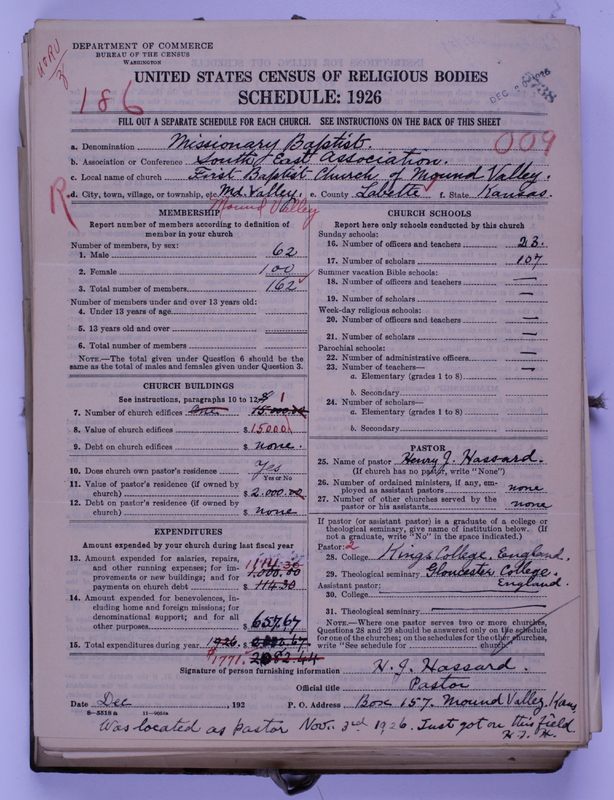 DEPARTMENT OF COMMERCE
BUREAU OF THE CENSUS
WASHINGTON
UNITED STATES CENSUS OF RELIGIOUS BODIES
SCHEDULE: 1926
186
FILL OUT A SEPARATE SCHEDULE FOR EACH CHURCH. SEE INSTRUCTIONS ON THE BACK OF THIS SHEET
009
a. Denomination Missionary Baptist.
b. Association or Conference South East Association.
c. Local name of church First Baptist Church of Mound Valley.
R
d. City, town, village, or township, etc. Md. Valley. e. County Labette f. State Kansas.
Mound Valley
MEMBERSHIP
Report number of members according to definition of member in your church
Number of members, by sex:
1. Male 62
2. Female 100
3. Total number of members 162
Number of members under and over 13 years old:
4. Under 13 years of age
5. 13 years old and over
6. Total number of members
NOTE.—The total given under Question 6 should be the
same as the total of males and females given under Question 3.
CHURCH BUILDINGS
See instructions, paragraphs 10 to 12
7. Number of church edifices One 15000.00 1
8. Value of church edifices $ 15000
9. Debt on church edifices $ none.
10. Does church own pastor's residence Yes
Yes or No
11. Value of pastor's residence (if owned by
church) $ 2.000.00
12. Debt on pastor's residence (if owned by
church) $ none
EXPENDITURES
Amount expended by your church during last fiscal year
13. Amount expended for salaries, repairs,
and other running expenses; for im-
provements or new buildings; and for
payments on church debt $ 1114.30
1,000.00
114.30
14. Amount expended for benevolences, in-
cluding home and foreign missions; for
denominational support; and for all
other purposes $ 657.67
15. Total expenditures during year 1926. $
$1771. 2082.44
CHURCH SCHOOLS
Report here only schools conducted by this church
Sunday schools:
16. Number of officers and teachers 23.
17. Number of scholars 107
Summer vacation Bible schools:
18. Number of officers and teachers —
19. Number of scholars —
Week-day religious schools:
20. Number of officers and teachers —
21. Number of scholars —
Parochial schools:
22. Number of administrative officers —
23. Number of teachers—
a. Elementary (grades 1 to 8) —
b. Secondary
24. Number of scholars—
a. Elementary (grades 1 to 8)
b. Secondary
PASTOR
25. Name of pastor Henry J. Hassard.
(If church has no pastor, write "None")
26. Number of ordained ministers, if any, em-
ployed as assistant pastors none
27. Number of other churches served by the
pastor or his assistants none
If pastor (or assistant pastor) is a graduate of a college or
theological seminary, give name of institution below. (If
not a graduate, write "No" in the space indicated.)
Pastor: 2
28. College King's College, England.
29. Theological seminary Gloucester College.
Assistant pastor: England.
30. College
31. Theological seminary
NOTE.—Where one pastor serves two or more churches,
Questions 28 and 29 should be answered only on the schedule
for one of the churches; on the schedules for the other churches,
write "See schedule for church"
Signature of person furnishing information H. J. Hassard.
Official title Pastor
Date Dec , 192 P. O. Address Box 157. Mound Valley. Kans
8—5518 a
Was located as pastor Nov. 3rd 1926. Just got on this field
H. J. H.